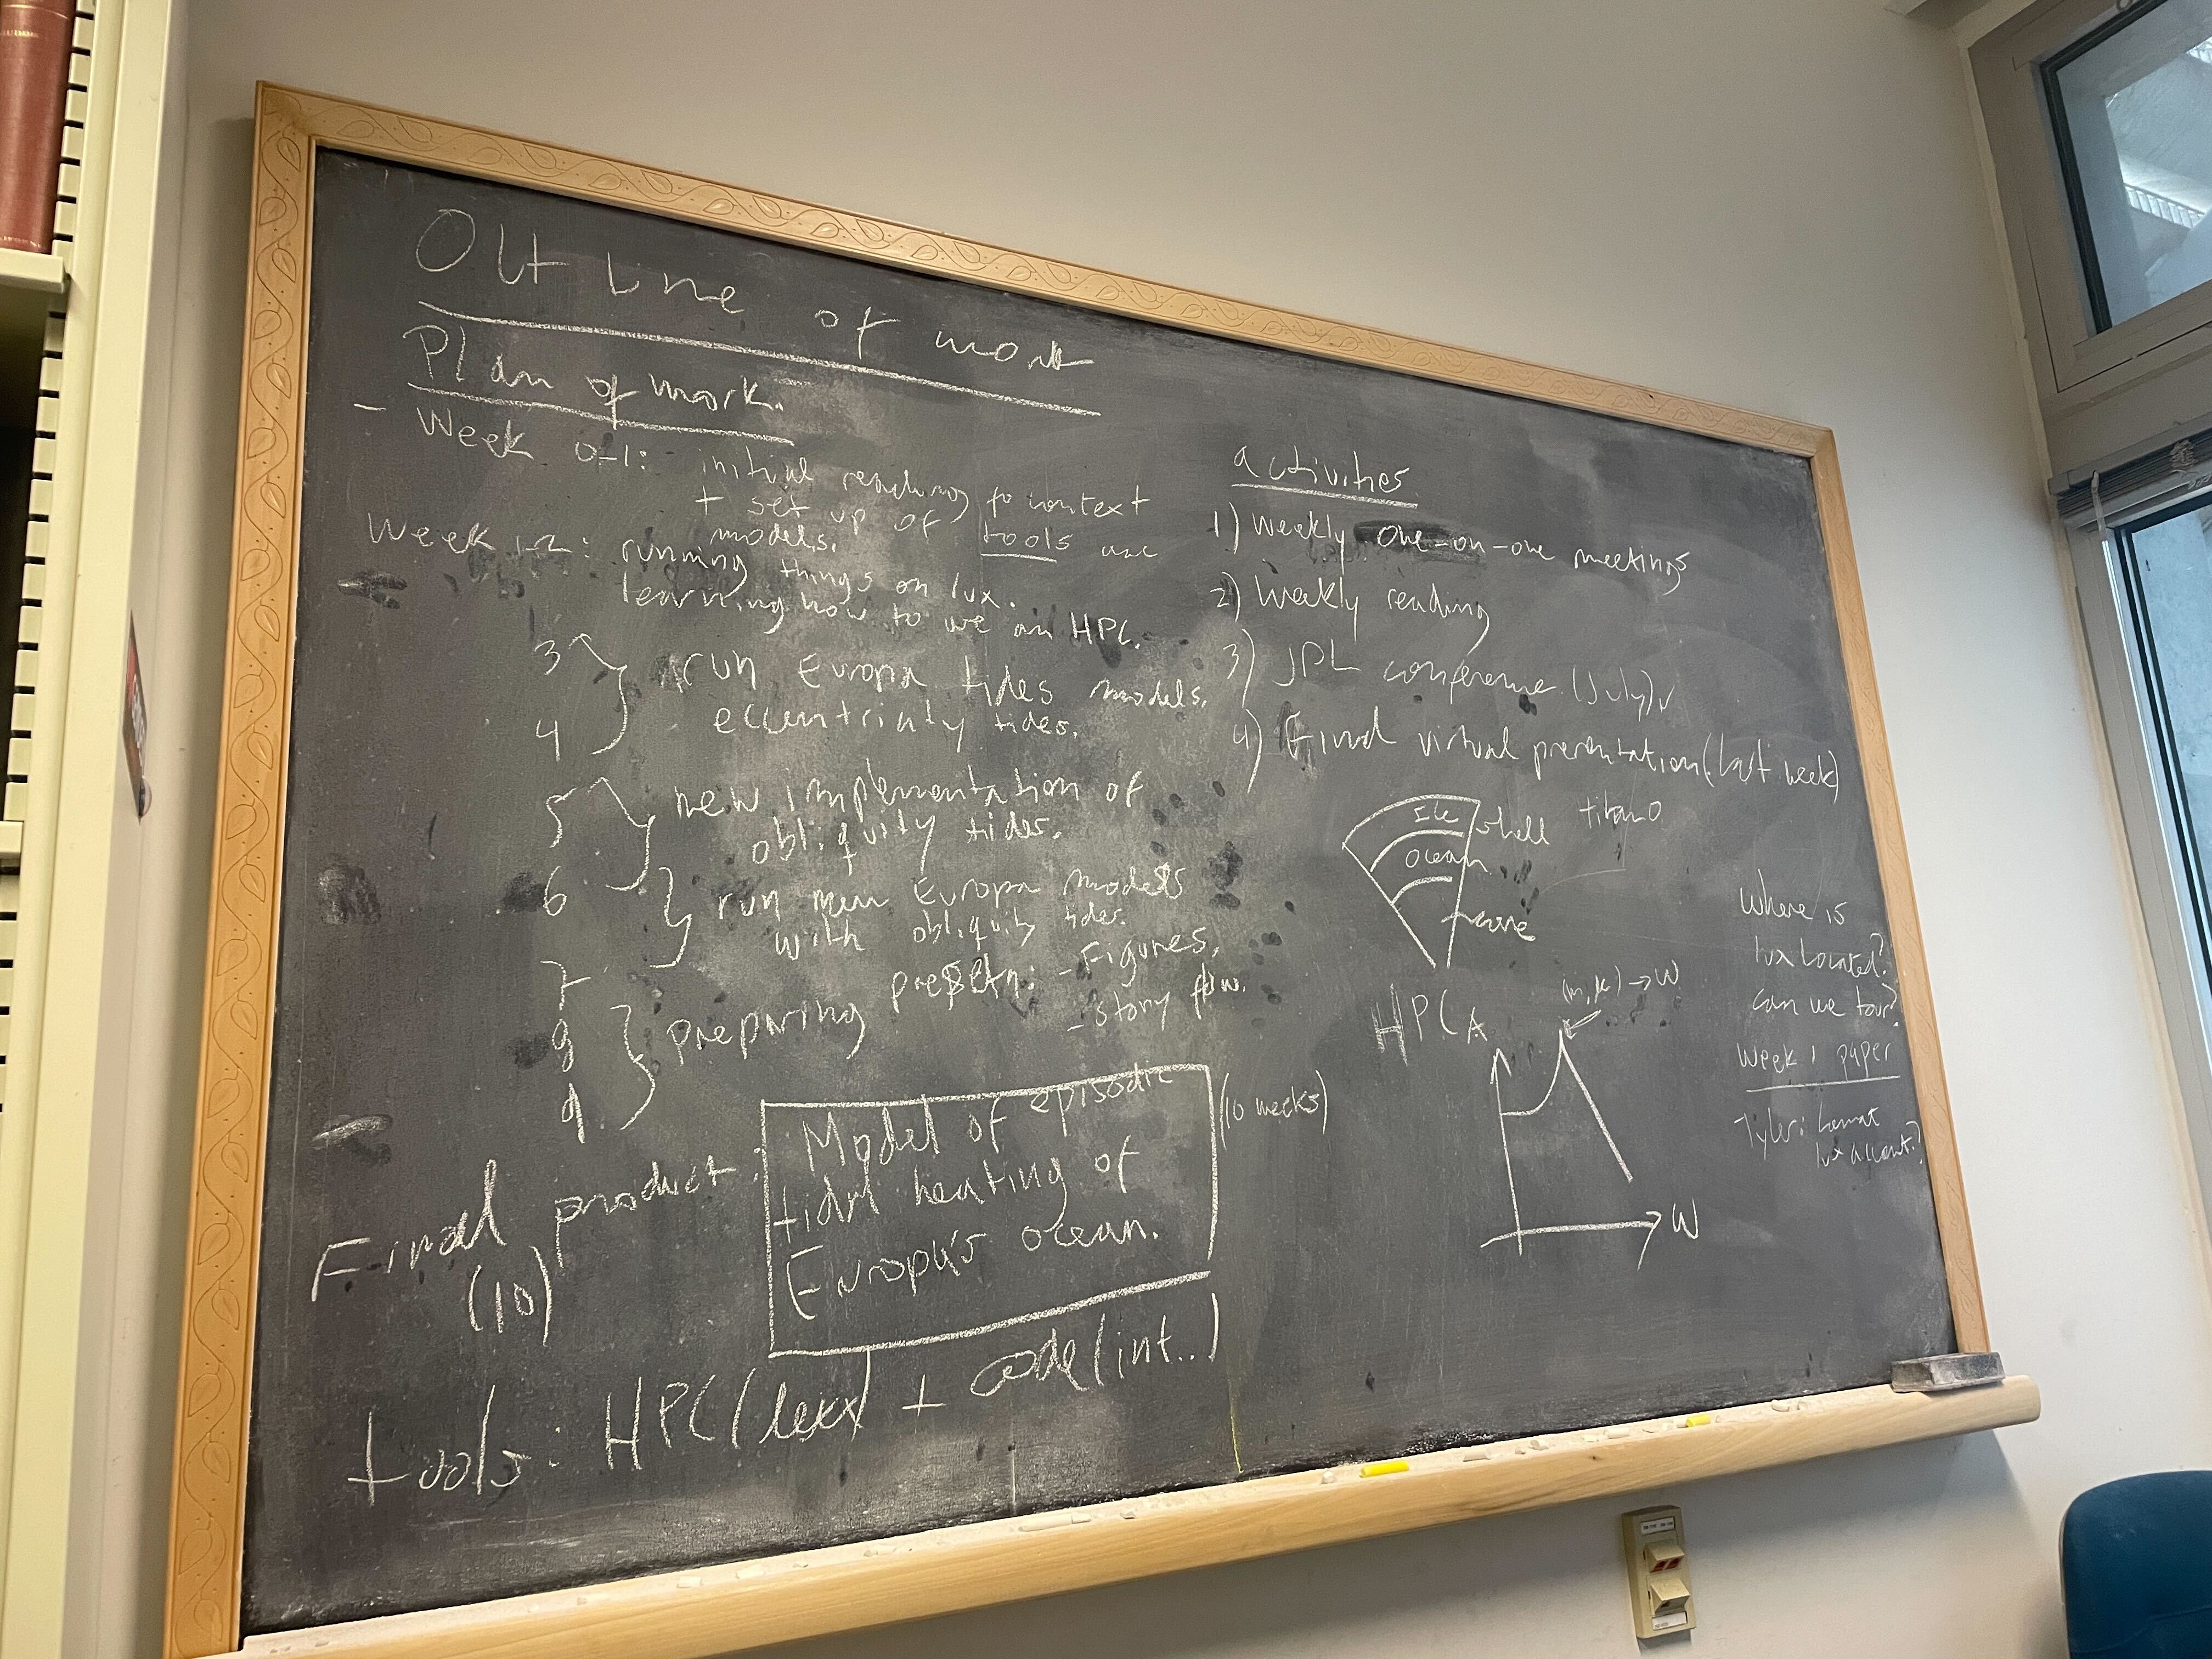 Outline of work
Plan of work.
- Week 0-1: initial reading for context
+ set up of tools and
models.
Week 1-2: running things on lux.
learning how to use an HPC.
3 } run Europa tides models.
4 eccentricity tides.
5 } new implementation of
obliquity tides.
6 } run new Europa models
with obliquity tides.
7
8 } preparing presetn: - Figures,
- story flow.
9
Final product: Model of episodic
(10) tidal heating of
Europa's ocean.
(10 weeks)
tools: HPC(lux) + code(int..)
activities
1) Weekly one-on-one meetings
2) Weekly reading
3) JPL conference (July)
4) Final virtual presentation (last week)
Ice shell
ocean
core
HPC
→ W
W
Where is
lux located?
can we tour?
Week 1 paper
Tyler:
lux account?